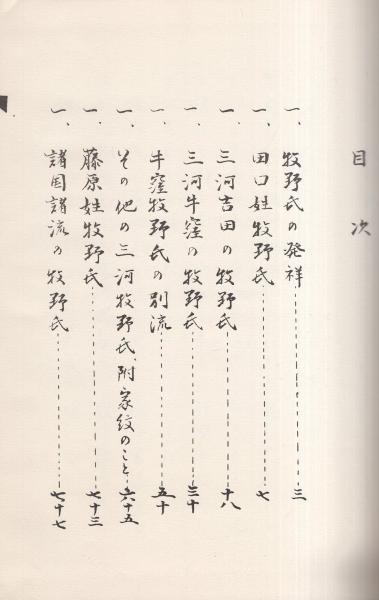 目次
一、牧野氏の発祥 三
一、田口姓牧野氏 七
一、三河吉田の牧野氏 十八
一、三河牛窪の牧野氏 三十
一、牛窪牧野氏の別流 五十
一、その他の三河牧野氏附家紋のこと 六十五
一、藤原姓牧野氏 七十三
一、諸国諸流の牧野氏 七十七